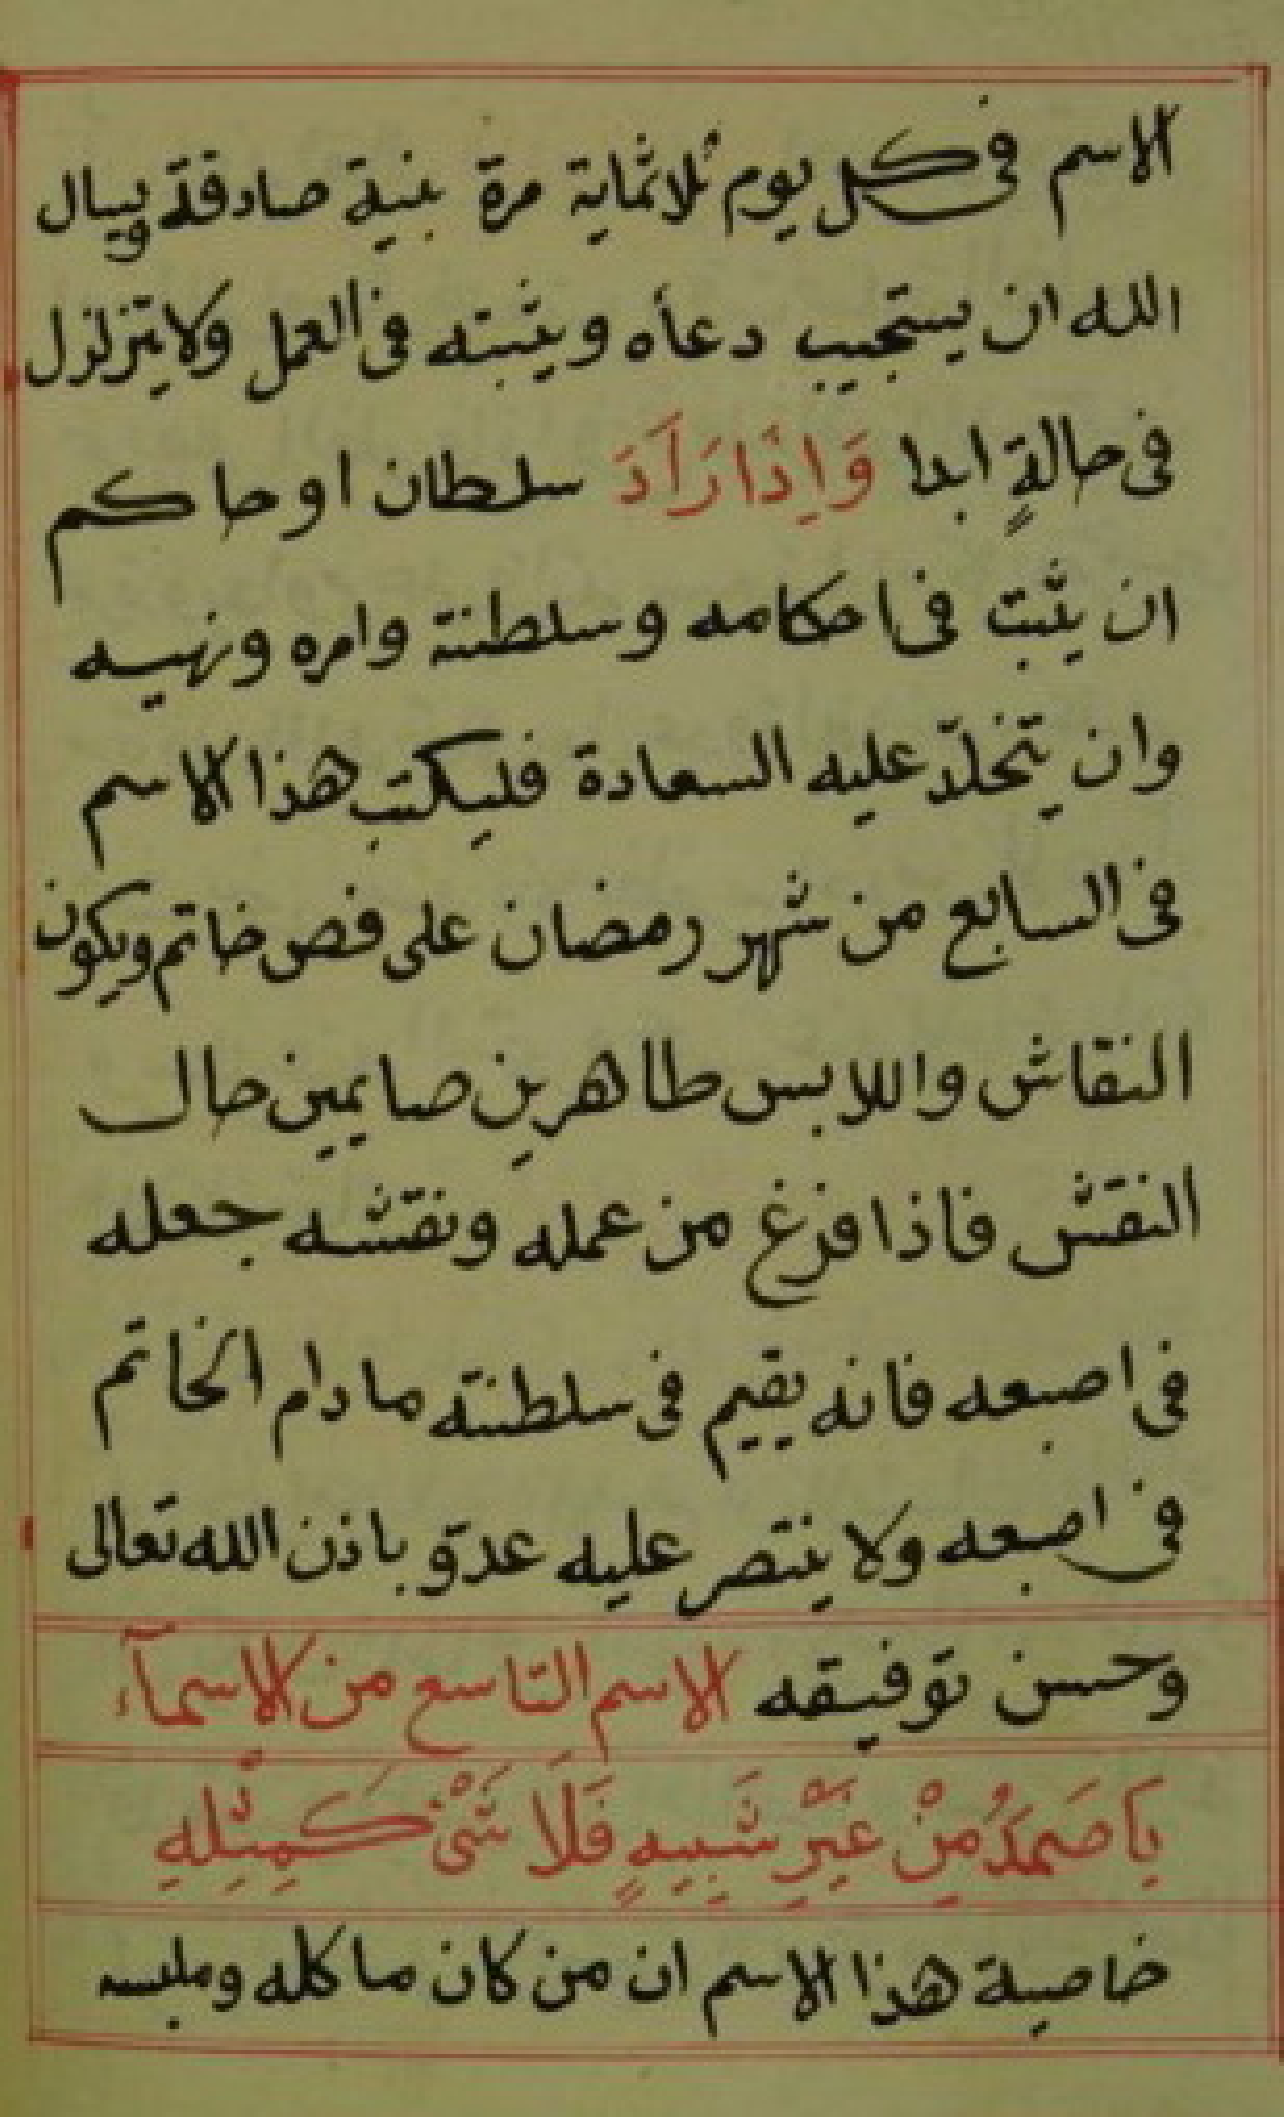 الاسم فى كل يوم ثلاثماية مرة بنية صادقة ويسال
الله ان يستجيب دعأه ويثبته فى العمل ولا يتزلزل
فى حالةٍ ابدا وَاِذَا رَاَدَ سلطان او حاكم
ان يثبت فى احكامه وسلطنته وامره ونهيه
وان يتخلّد عليه السعادة فليكتب هذا الاسم
فى السابع من شهر رمضان على فص خاتم ويكون
النقاش واللابس طاهرين صايمين حال
النقش فاذا فرغ من عمله ونقشه جعله
فى اصبعه فانه يقيم فى سلطنته مادام الخاتم
فى اصبعه ولا ينتصر عليه عدوّ باذن الله تعالى
وحسن توفيقه الاسم التاسع من الاسمآء
يَا صَمَدُ مِنْ غَيْرِ شَبِيهٍ فَلَا شَىْ كَمِثْلِهِ
خاصية هذا الاسم ان من كان ماكله وملبسه